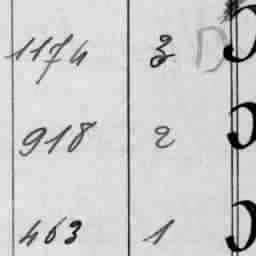 1174 3 D
918 2
463 1